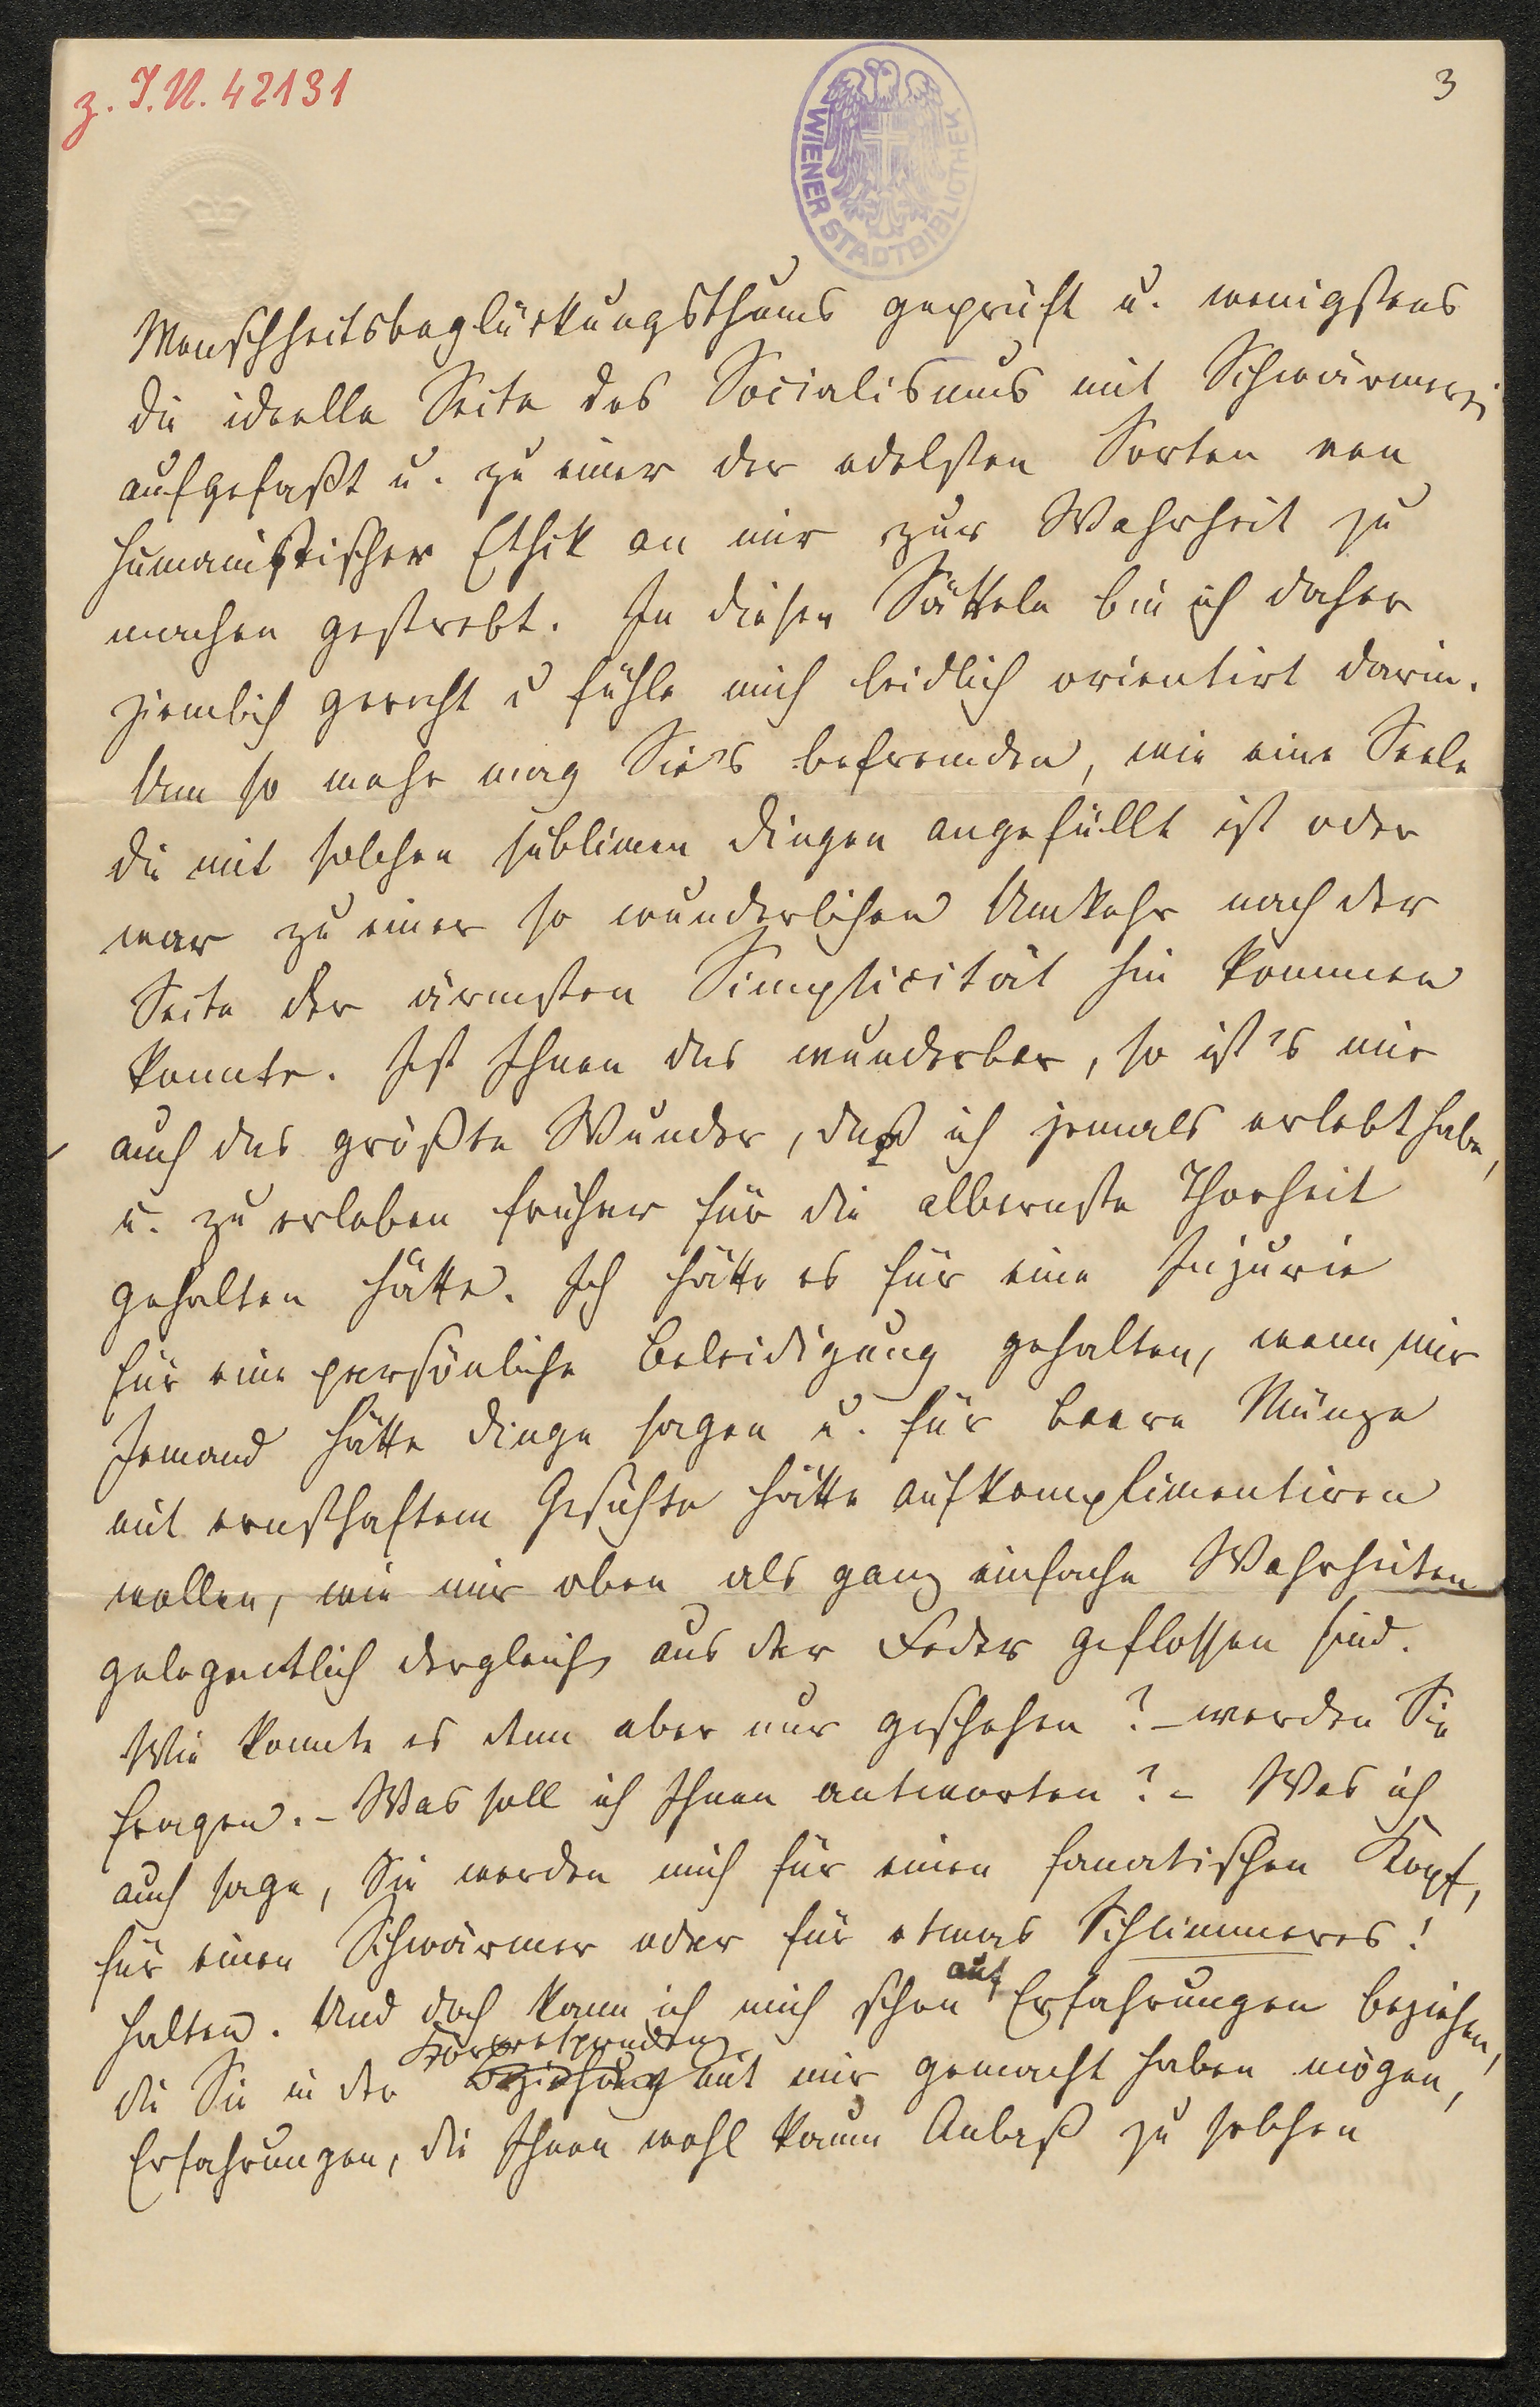 z. I.N. 42131
3
WIENER STADTBIBLIOTHEK
Menschheitsbeglückungsthums geprüft u. wenigstens
die ideelle Seite des Socialismus mit Schwärmerei
aufgefaßt u. zu einer der edelsten Sorten von
humanistischer Ethik an mir zur Wahrheit zu
machen gestrebt. In diesen Sätteln bin ich daher
ziemlich gerecht u fühle mich leidlich orientirt darin.
Um so mehr mag Sie's befremden, wie eine Seele
die mit solchen sublimen Dingen angefüllt ist oder
war zu einer so wunderlichen Umkehr nach der
Seite der ärmsten Simplicität hin kommen
konnte. Ist Ihnen das wunderbar, so ist's mir
auch das größte Wunder, daß ich jemals erlebt habe,
u. zu erleben früher für die albernste Thorheit
gehalten hätte. Ich hätte es für eine Injurie
für eine persönliche Beleidigung gehalten, wenn mir
Jemand hätte Dinge sagen u. für baare Münze
mit ernsthaftem Gesichte hätte aufkomplimentiren
wollen, wie mir oben als ganz einfache Wahrheiten
gelegentlich dergleich aus der Feder geflossen sind.
Wie konnte es denn aber nur geschehen? – werden Sie
fragen. – Was soll ich Ihnen antworten? – Was ich
auch sage, Sie werden mich für einen fanatischen Kopf,
für einen Schwärmer oder für etwas Schlimmeres!
halten. Und doch kann ich mich schon auf Erfahrungen beziehen,
die Sie in der Beziehung Korrespondenz mit mir gemacht haben mögen,
Erfahrungen, die Ihnen wohl kaum Anlaß zu solchen